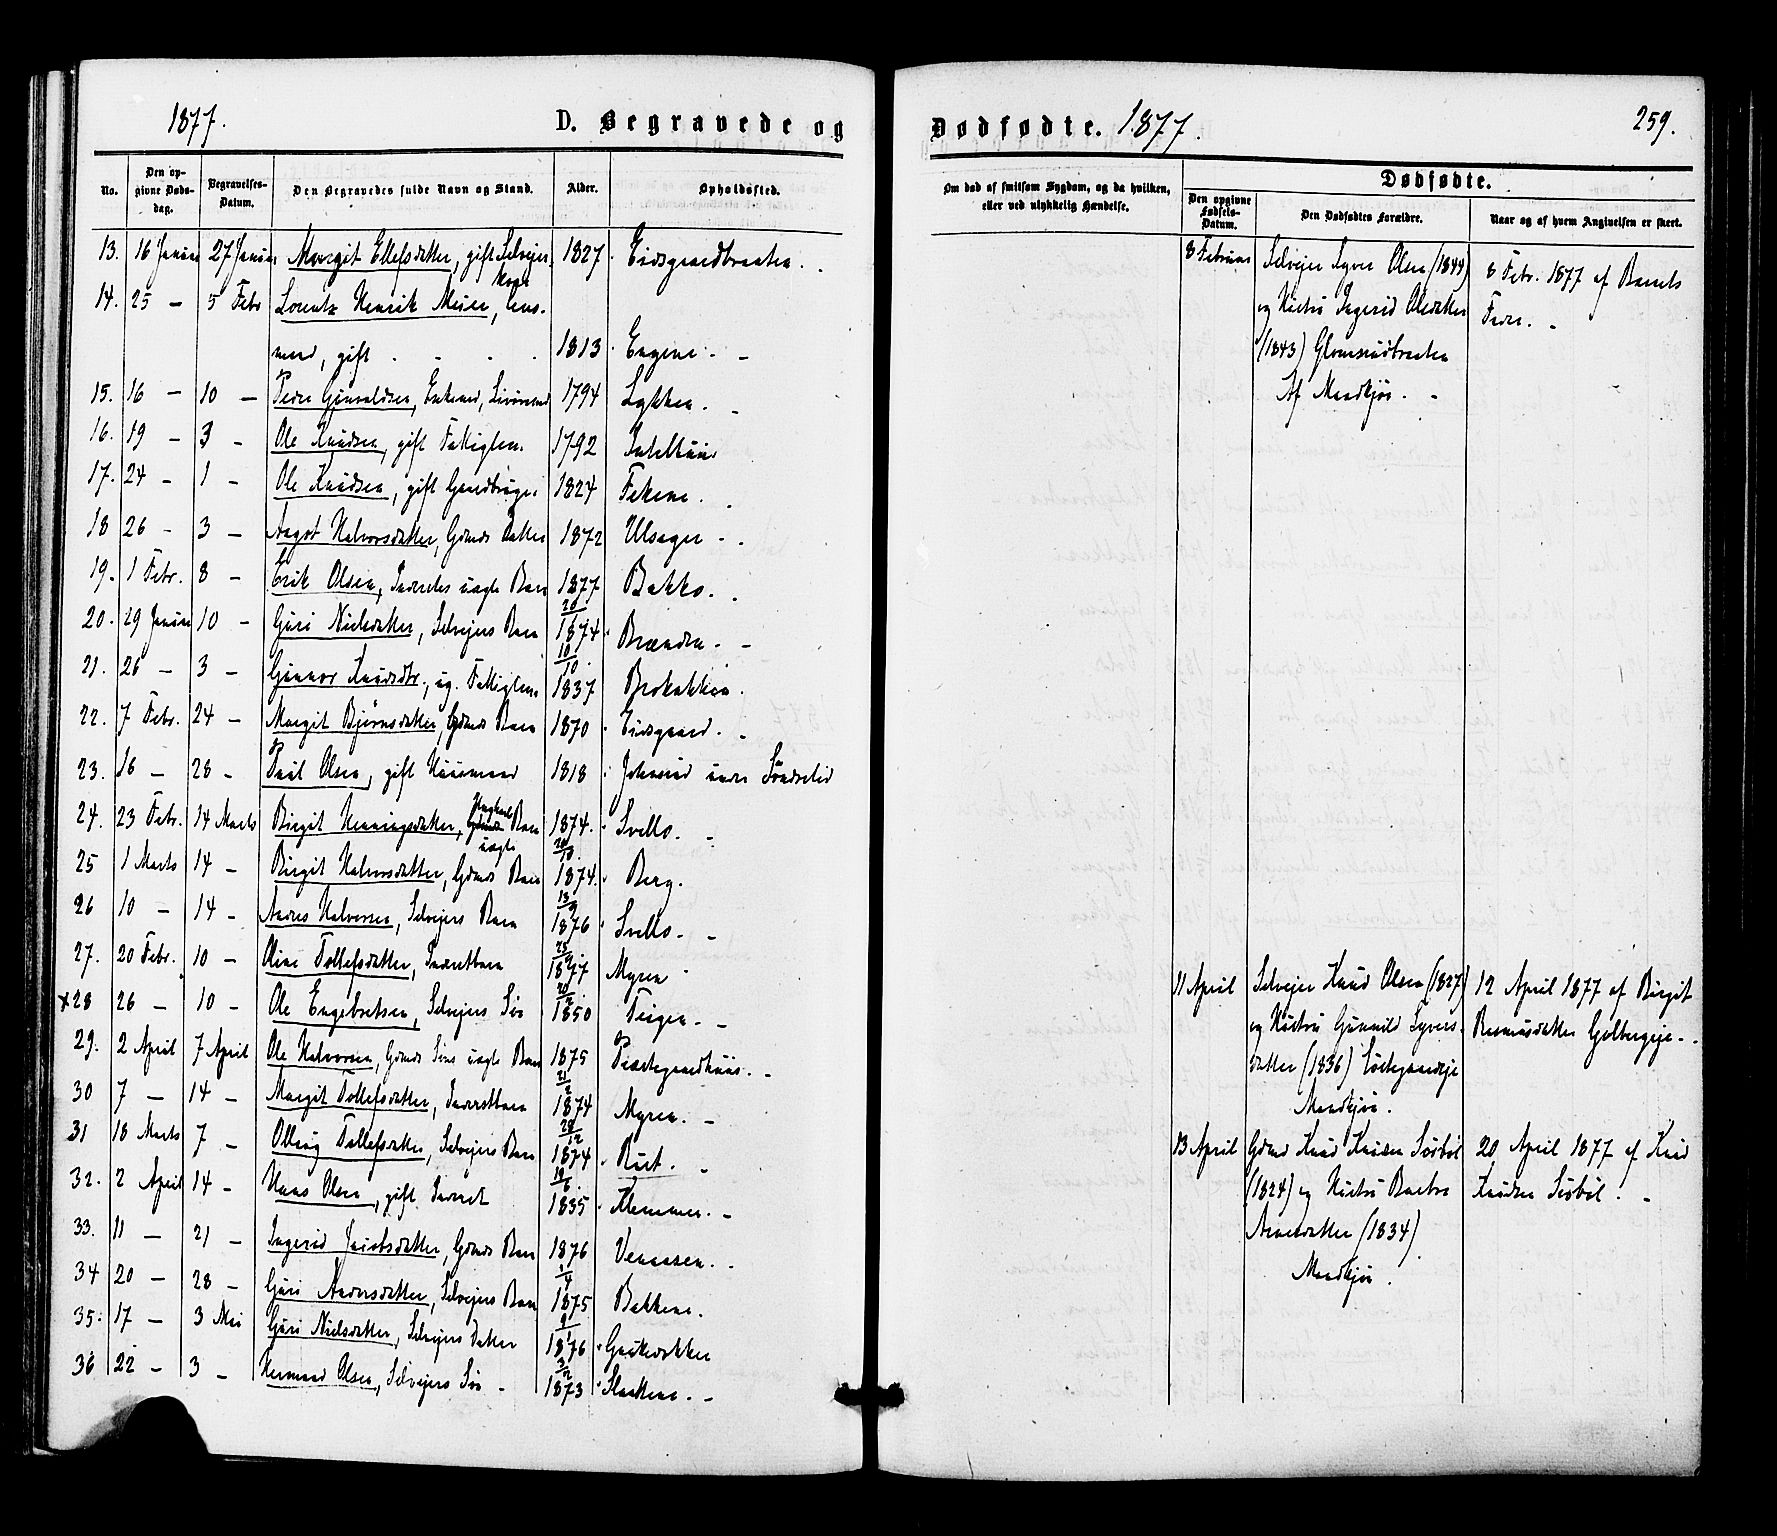 1877.
D. Begravede og
No.
Den opgivne Dødsdag.
Begravelses-Datum.
Den Begravedes fulde Navn og Stand.
Alder.
Opholdssted.
13. 16 Januar 27 Januar Margit Ellefsdatter, gift Selvejer- 1827. Eidsgaardbraaten.
kone
14. 25 — 5 Febr Lorentz Henrik Meier, Lens-
mand, gift 1813. Engene. —
15. 16 — 10 — Peder Gunvaldsen, Enkemd, 1794 Løkken. —
16. 19 — 3 — Ole Knudsen, gift Fattiglem. 1792
17. 24 — 1 — Ole Knudsen, gift Gaardbruger 1824
18 26 — 3 — Aagot Halvorsdatter, Gdmds Datter 1872 Ulsager —.
19. 1 Febr. 8 — Erik Olsen, Inderstes uægte Barn 1877 Bakko.
20/1
20. 29 Januar 10 — Guri Nielsdatter, Selvejers Barn 1874. Brænden. —
10/10
21. 26 — 3 — Gunvor Knudsdtr., ug. Fattiglem. 1837 Brokakken.
22. 7 Febr. 24 — Margit Bjørnsdatter, Gdmds Barn 1870. Eidsgaard. —
23. 16 — 28 — Paul Olsen, gift Huusmand 1818. Johnsrud under Søndrelid
24. 23 Febr. 14 Marts Birgit Henningsdatter, Barn 1874. Svello. —
uægte
25 1 Marts 14 — Birgit Halvorsdatter, Gdmds Barn 1874. Berg.
26 10 — 14 — Andres Halvorsen, Selvejers Barn 1876. Svello. —
27. 20 Febr. 10 — Oline Tollefsdatter, Inderstbarn 1877 Myren
×28 26 — 10 — Ole Engebretsen, Selvejers Søn 1850 Teigen. —
29. 2 April 7 April Ole Halvorsen, Gdmds Søns uægte Barn 1875 Præstegaardhuus. —
30 7 — 14 — Margit Tollefsdatter, Inderstbarn 1874 Myren. —
31 18 Marts 7 — Ollaug Tollefsdatter, Selvejers Barn 1874. Rust. —
32. 2 April 14 — Hans Olsen, gift Inderst 1835. Klemmen. —
33. 11 — 21 — Ingerid Jacobsdatter, Gdmds Barn 1876 Venaasen. —
34 20 — 28 — Guri Andersdatter, Selvejers Barn 1875 Bakkene.
35. 17 — 3 Mai Guri Nielsdatter, Selvejers Datter 1876.
36 22 — 3 — Hermand Olsen, Selvejers Søn — 1873. Slaattene. —
Dødfødte. 1877.
259.
Om død af smitsom Sygdom, og da hvilken, eller ved ulykkelig Hændelse.
Dødfødte.
Den opgivne Fødsels-Datum.
Den Dødfødtes Forældre.
Naar og af hvem Angivelsen er skeet.
8 Februar Selvejer Syver Olsen (1844)
og Hustru Ingerid Olsdatter
(1843) Glomsrudbraaten
Af Mandkjøn. —
8 Febr. 1877 af Barnets
Fader. —
11 April Selvejer Knud Olsen (1827)
og Hustru Gunnild Syvers-
datter (1836)
Mandkjøn.
12 April 1877 af Birgit
Rasmusdatter
13 April Gdmd Knud Knudsen Sørbøl
(1824) og Hustru Barbro
Arnesdatter (1834)
Mandkjøn.
20 April 1877 af Knud
Knudsen Sørbøl. —